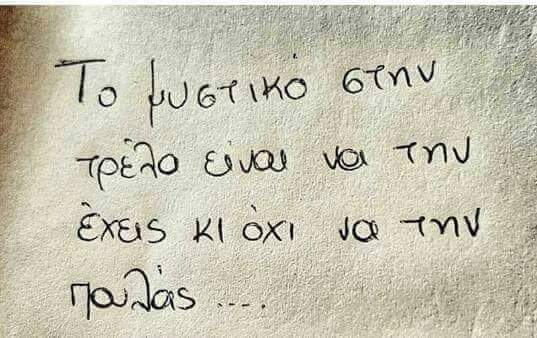 Το μυστικό στην
τρέλα είναι να την
έχεις κι όχι να την
πουλάς ....